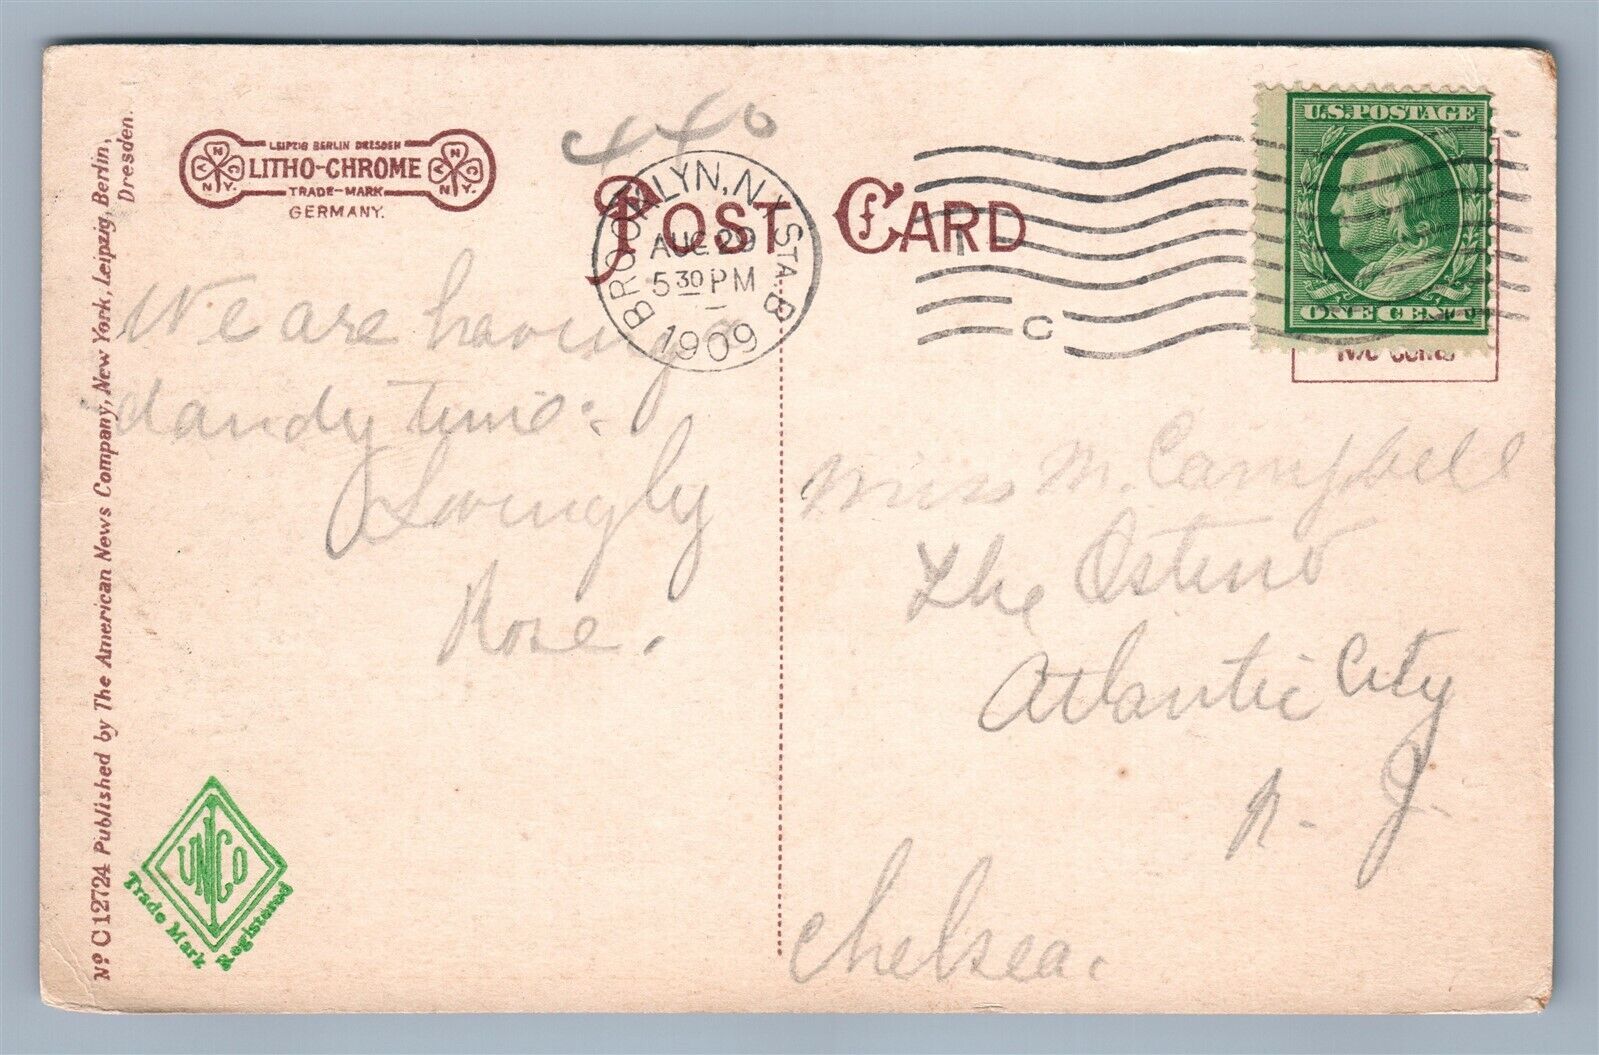 LEIPZIG BERLIN DRESDEN
LITHO-CHROME
TRADE-MARK
GERMANY.
POST CARD
BROOKLYN, N.Y. STA. B
AUG 29
5 30 PM
1909
C
U.S. POSTAGE
ONE CENT
We are having a
dandy time.
Lovingly
Rose.
Miss M. Campbell
The Ostend
Atlantic City
N. J.
Chelsea.
UNICO
Trade Mark Registered
No C 12724 Published by The American News Company, New York, Leipzig, Berlin,
Dresden.